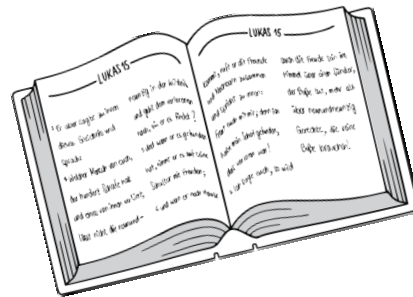 LUKAS 15
3 Er aber sagte zu ihnen
dieses Gleichnis und
sprach:
4 Welcher Mensch von euch,
der hundert Schafe hat
und eines von ihnen verliert,
lässt nicht die neunund-
neunzig in der Wildnis
und geht dem verlorenen
nach, bis er es findet?
5 Und wenn er es gefunden
hat, nimmt er es auf seine
Schulter mit Freuden;
6 und wenn er nach Hause
LUKAS 15
kommt, ruft er die Freunde
und Nachbarn zusammen
und spricht zu ihnen:
Freut euch mit mir; denn ich
habe mein Schaf gefunden,
das verloren war!
7 Ich sage euch, so wird
auch die Freude sein im
Himmel über einen Sünder,
der Buße tut, mehr als
über neunundneunzig
Gerechte, die keine
Buße brauchen!